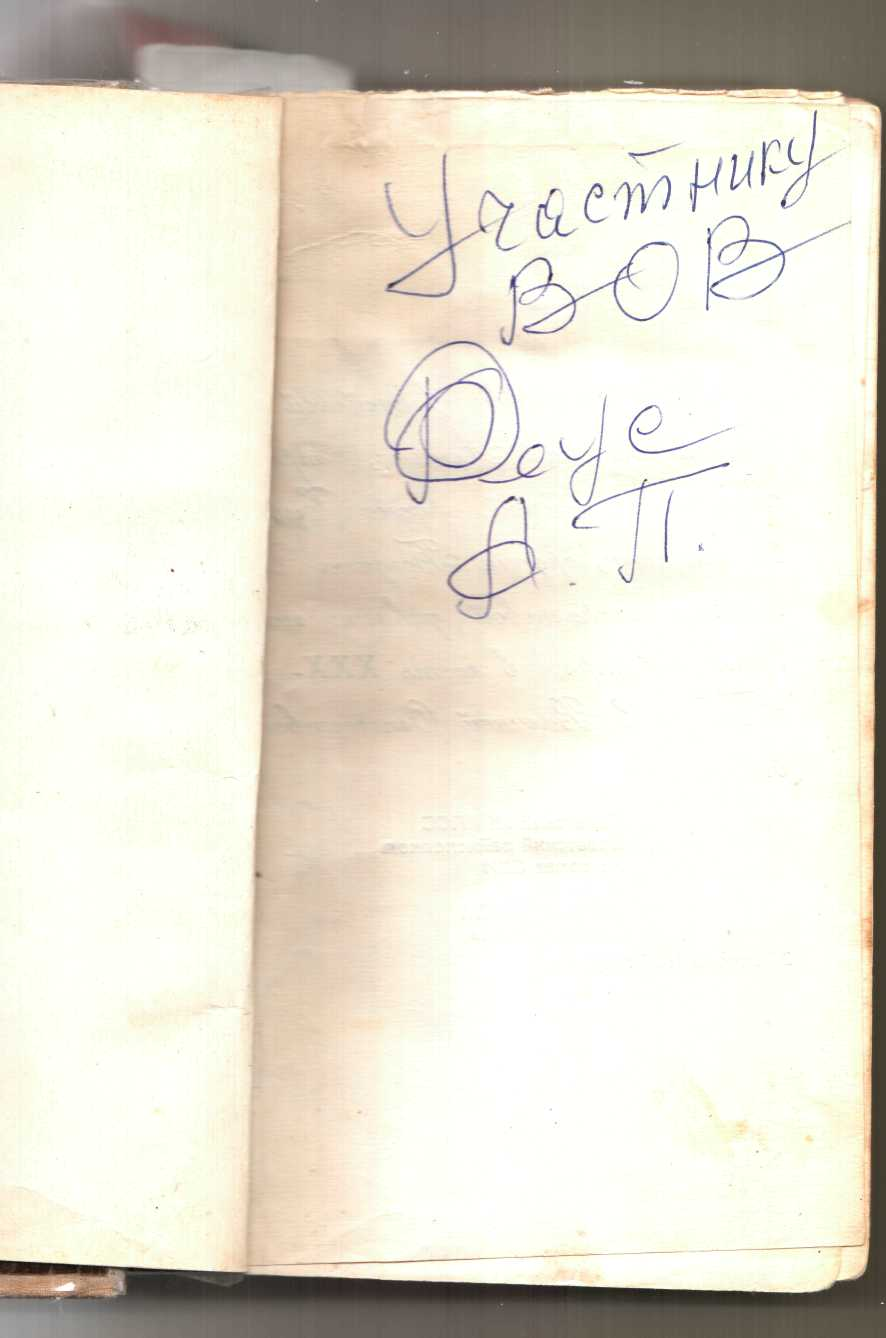 Участнику
ВОВ
Реус
А. П.